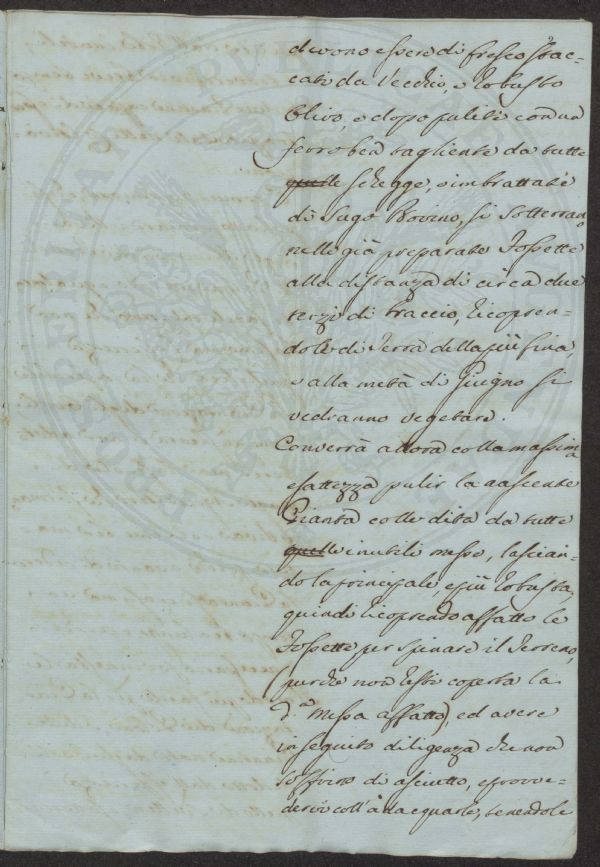 devono essere di fresco stac-
cati da Vecchio, e robusto
Olivo, e dopo puliti con un
ferro ben tagliente da tutte
quelle schegge, e imbrattate
di Sugo Bovino, si sotterran
nelle già preparate Fossette
alla distanza di circa due
terzi di braccio, ricopren-
dole di Terra della più fina,
e alla metà di Giugno si
vedranno vegetare.
Converrà allora colla massima
esattezza pulir la nascente
Pianta colle dita da tutte
quelle inutili messe, lascian-
do la principale, e più robusta,
quindi ricoprendo affatto le
Fossette per spinare il Terreno,
(purche non resti coperta la
d.ª Messa affatto) ed avere
in seguito diligenza che non
soffrino di asciutto, e provve-
dervi coll'adacquarle, tenendole
PROSPERITAS PVBLICAE